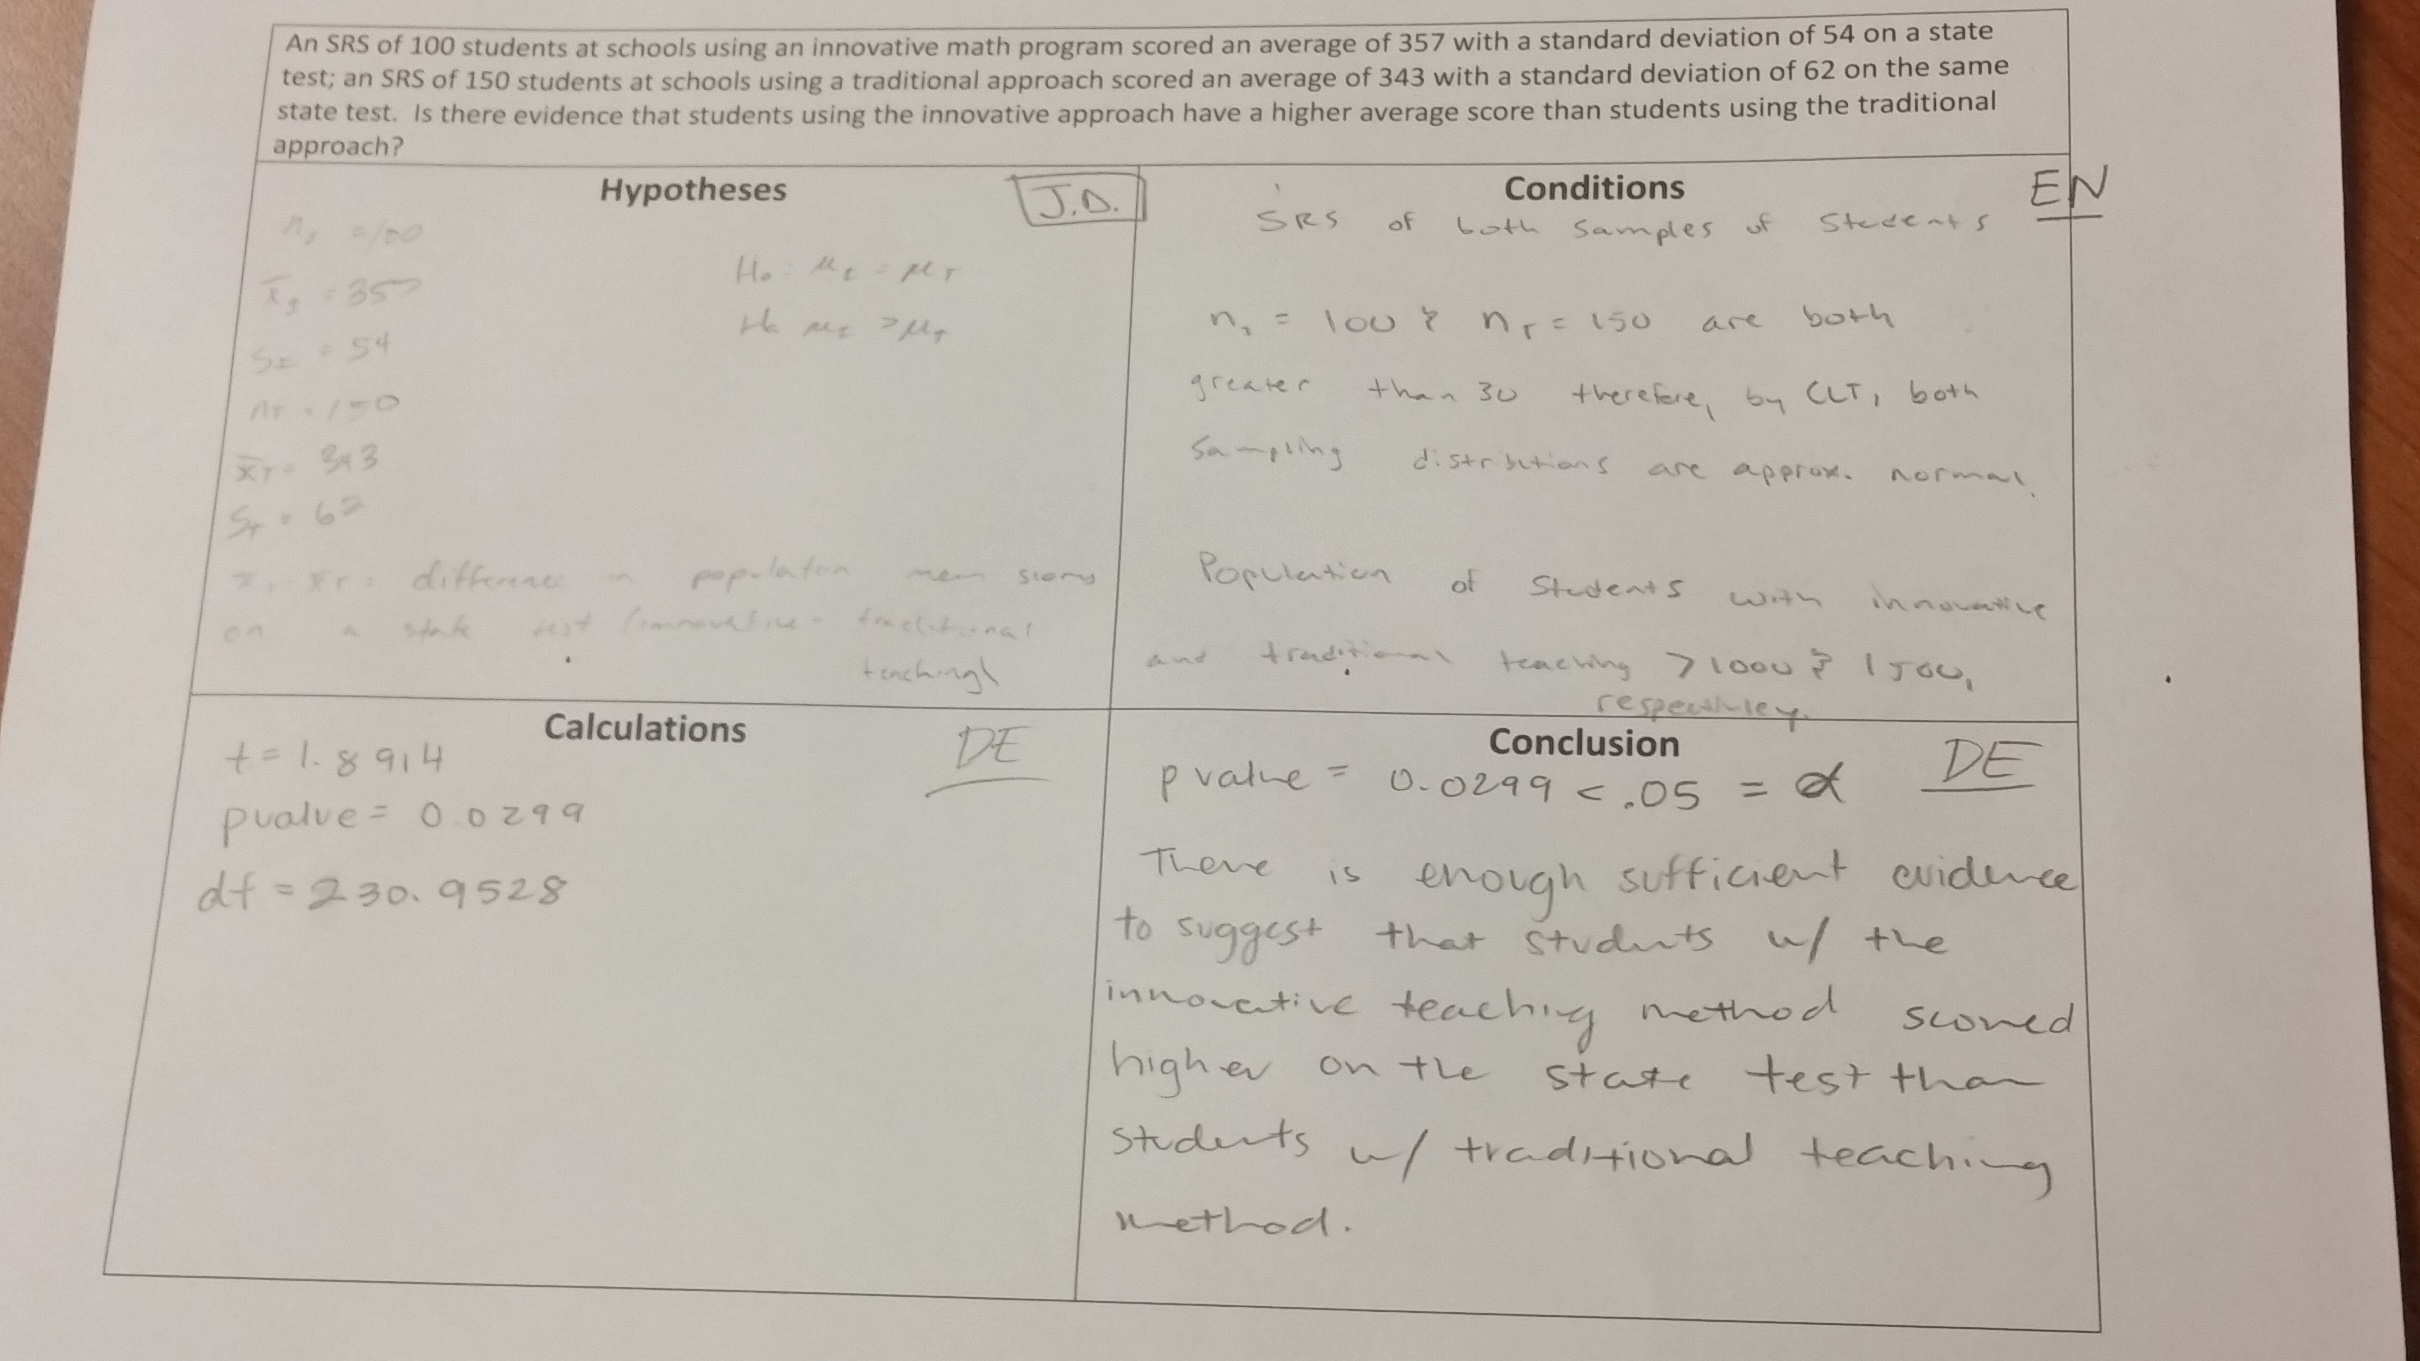 An SRS of 100 students at schools using an innovative math program scored an average of 357 with a standard deviation of 54 on a state
test; an SRS of 150 students at schools using a traditional approach scored an average of 343 with a standard deviation of 62 on the same
state test. Is there evidence that students using the innovative approach have a higher average score than students using the traditional
approach?
Hypotheses
J.D.
n_I = 100
x̄_I = 357
S_I = 54
n_T = 150
x̄_T = 343
S_T = 62
H₀: μ_I = μ_T
Ha μ_I > μ_T
x̄_I - x̄_T : difference in population mean scores
on a state test (innovative - traditional
teaching)
Conditions
EN
SRS of both samples of students
n_I = 100 & n_T = 150 are both
greater than 30 therefore, by CLT, both
sampling distributions are approx. normal.
Population of students with innovative
and traditional teaching > 1000 & 1500,
respectivley.
Calculations
DE
t = 1.8914
pvalue = 0.0299
df = 230.9528
Conclusion
DE
p value = 0.0299 < .05 = α
There is enough sufficient evidence
to suggest that students w/ the
innovative teaching method scored
higher on the state test than
students w/ traditional teaching
method.